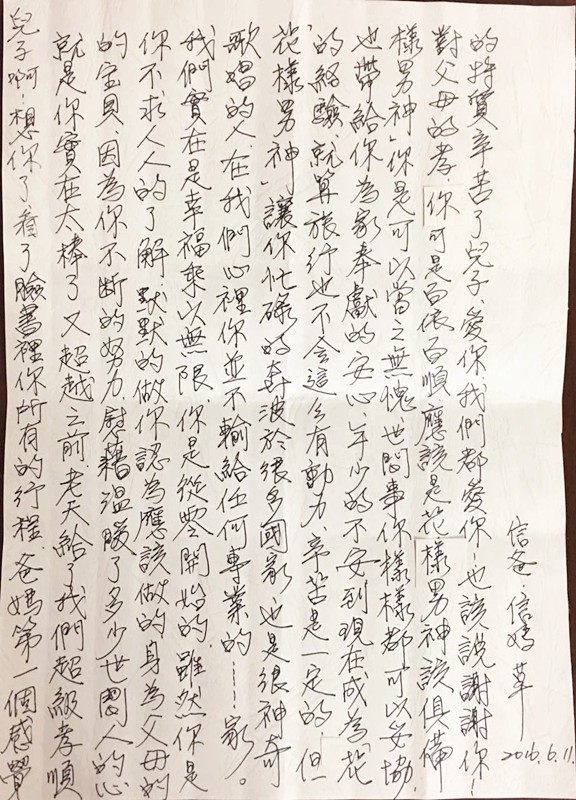 兒子啊…想你了看了臉書裡你所有的行程.爸媽第一個感覺
就是你實在太棒了又超越之前.老天給了我們超級孝順
的宝貝、因為你不斷的努力.慰藉溫暖了多少世間人的心
你不求人人的了解.默默的做你認為應該做的.身為父母的
我們實在是幸福乘以無限、你是從零開始的.雖然你是
歌唱的人、在我們心裡你並不輸給任何專業的……家。
花樣男神」讓你忙碌的奔波於很多國家、也是很神奇
的經驗、就算旅行也不会這么有動力、辛苦是一定的、但
也帶給你為家奉獻的安心、年少的不安到現在成為「花
樣男神」你是可以當之無愧.世間事你樣樣都可以妥協.
對父母的孝.你可是百依百順應該是花樣男神該俱備
的特質辛苦了兒子、愛你我們都愛你!也該說謝謝你!
信爸.信媽 草
2016.6.11.